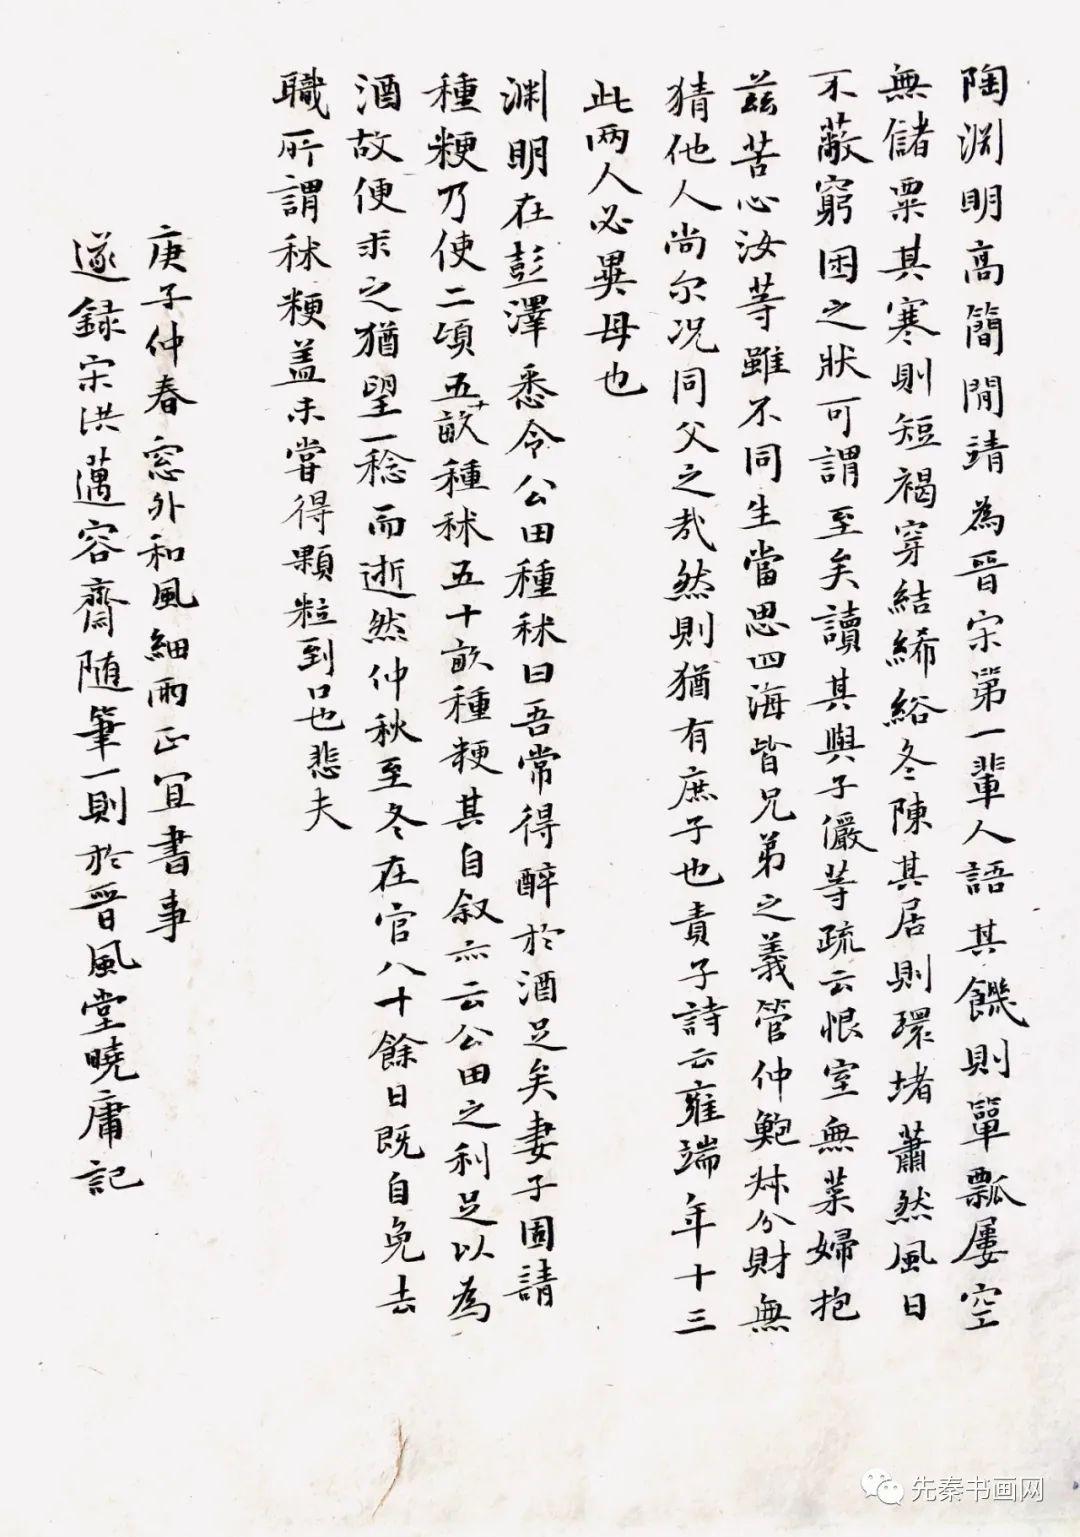 陶淵明高簡閒靖為晉宋第一輩人語其饑則簞瓢屢空
無儲粟其寒則短褐穿結絺綌冬陳其居則環堵蕭然風日
不蔽窮困之狀可謂至矣讀其與子儼等疏云恨室無菜婦抱
茲苦心汝等雖不同生當思四海皆兄弟之義管仲鮑叔分財無
猜他人尚尔況同父之哉然則猶有庶子也責子詩云雍端年十三
此兩人必異母也
淵明在彭澤悉令公田種秫曰吾常得醉於酒足矣妻子固請
種粳乃使二頃五十畝種秫五十畝種粳其自叙亦云公田之利足以為
酒故便求之猶望一稔而逝然仲秋至冬在官八十餘日既自免去
職所謂秫粳蓋未嘗得顆粒到口也悲夫
庚子仲春窓外和風細雨正宜書事
遂録宋洪邁容齋随筆一則於晉風堂曉庸記
先秦书画网